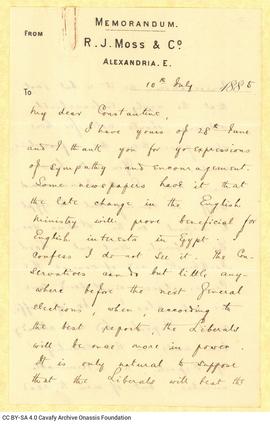 MEMORANDUM.
FROM
R. J. MOSS & Co
ALEXANDRIA. E.
10th July 1885
TO
My dear Constantine,
I have yours of 28th June
and I thank you for yr expressions
of sympathy and encouragement.
Some newspapers have it that
the late change in the English
ministry will prove beneficial for
English interests in Egypt. I
confess I do not see it. The Con-
servatives can do but little any-
where before the next General
elections, when, according to
the best reports, the Liberals
will be once more in power.
It is only natural to suppose
that the Liberals will beat the
CC BY-SA 4.0 Cavafy Archive Onassis Foundation